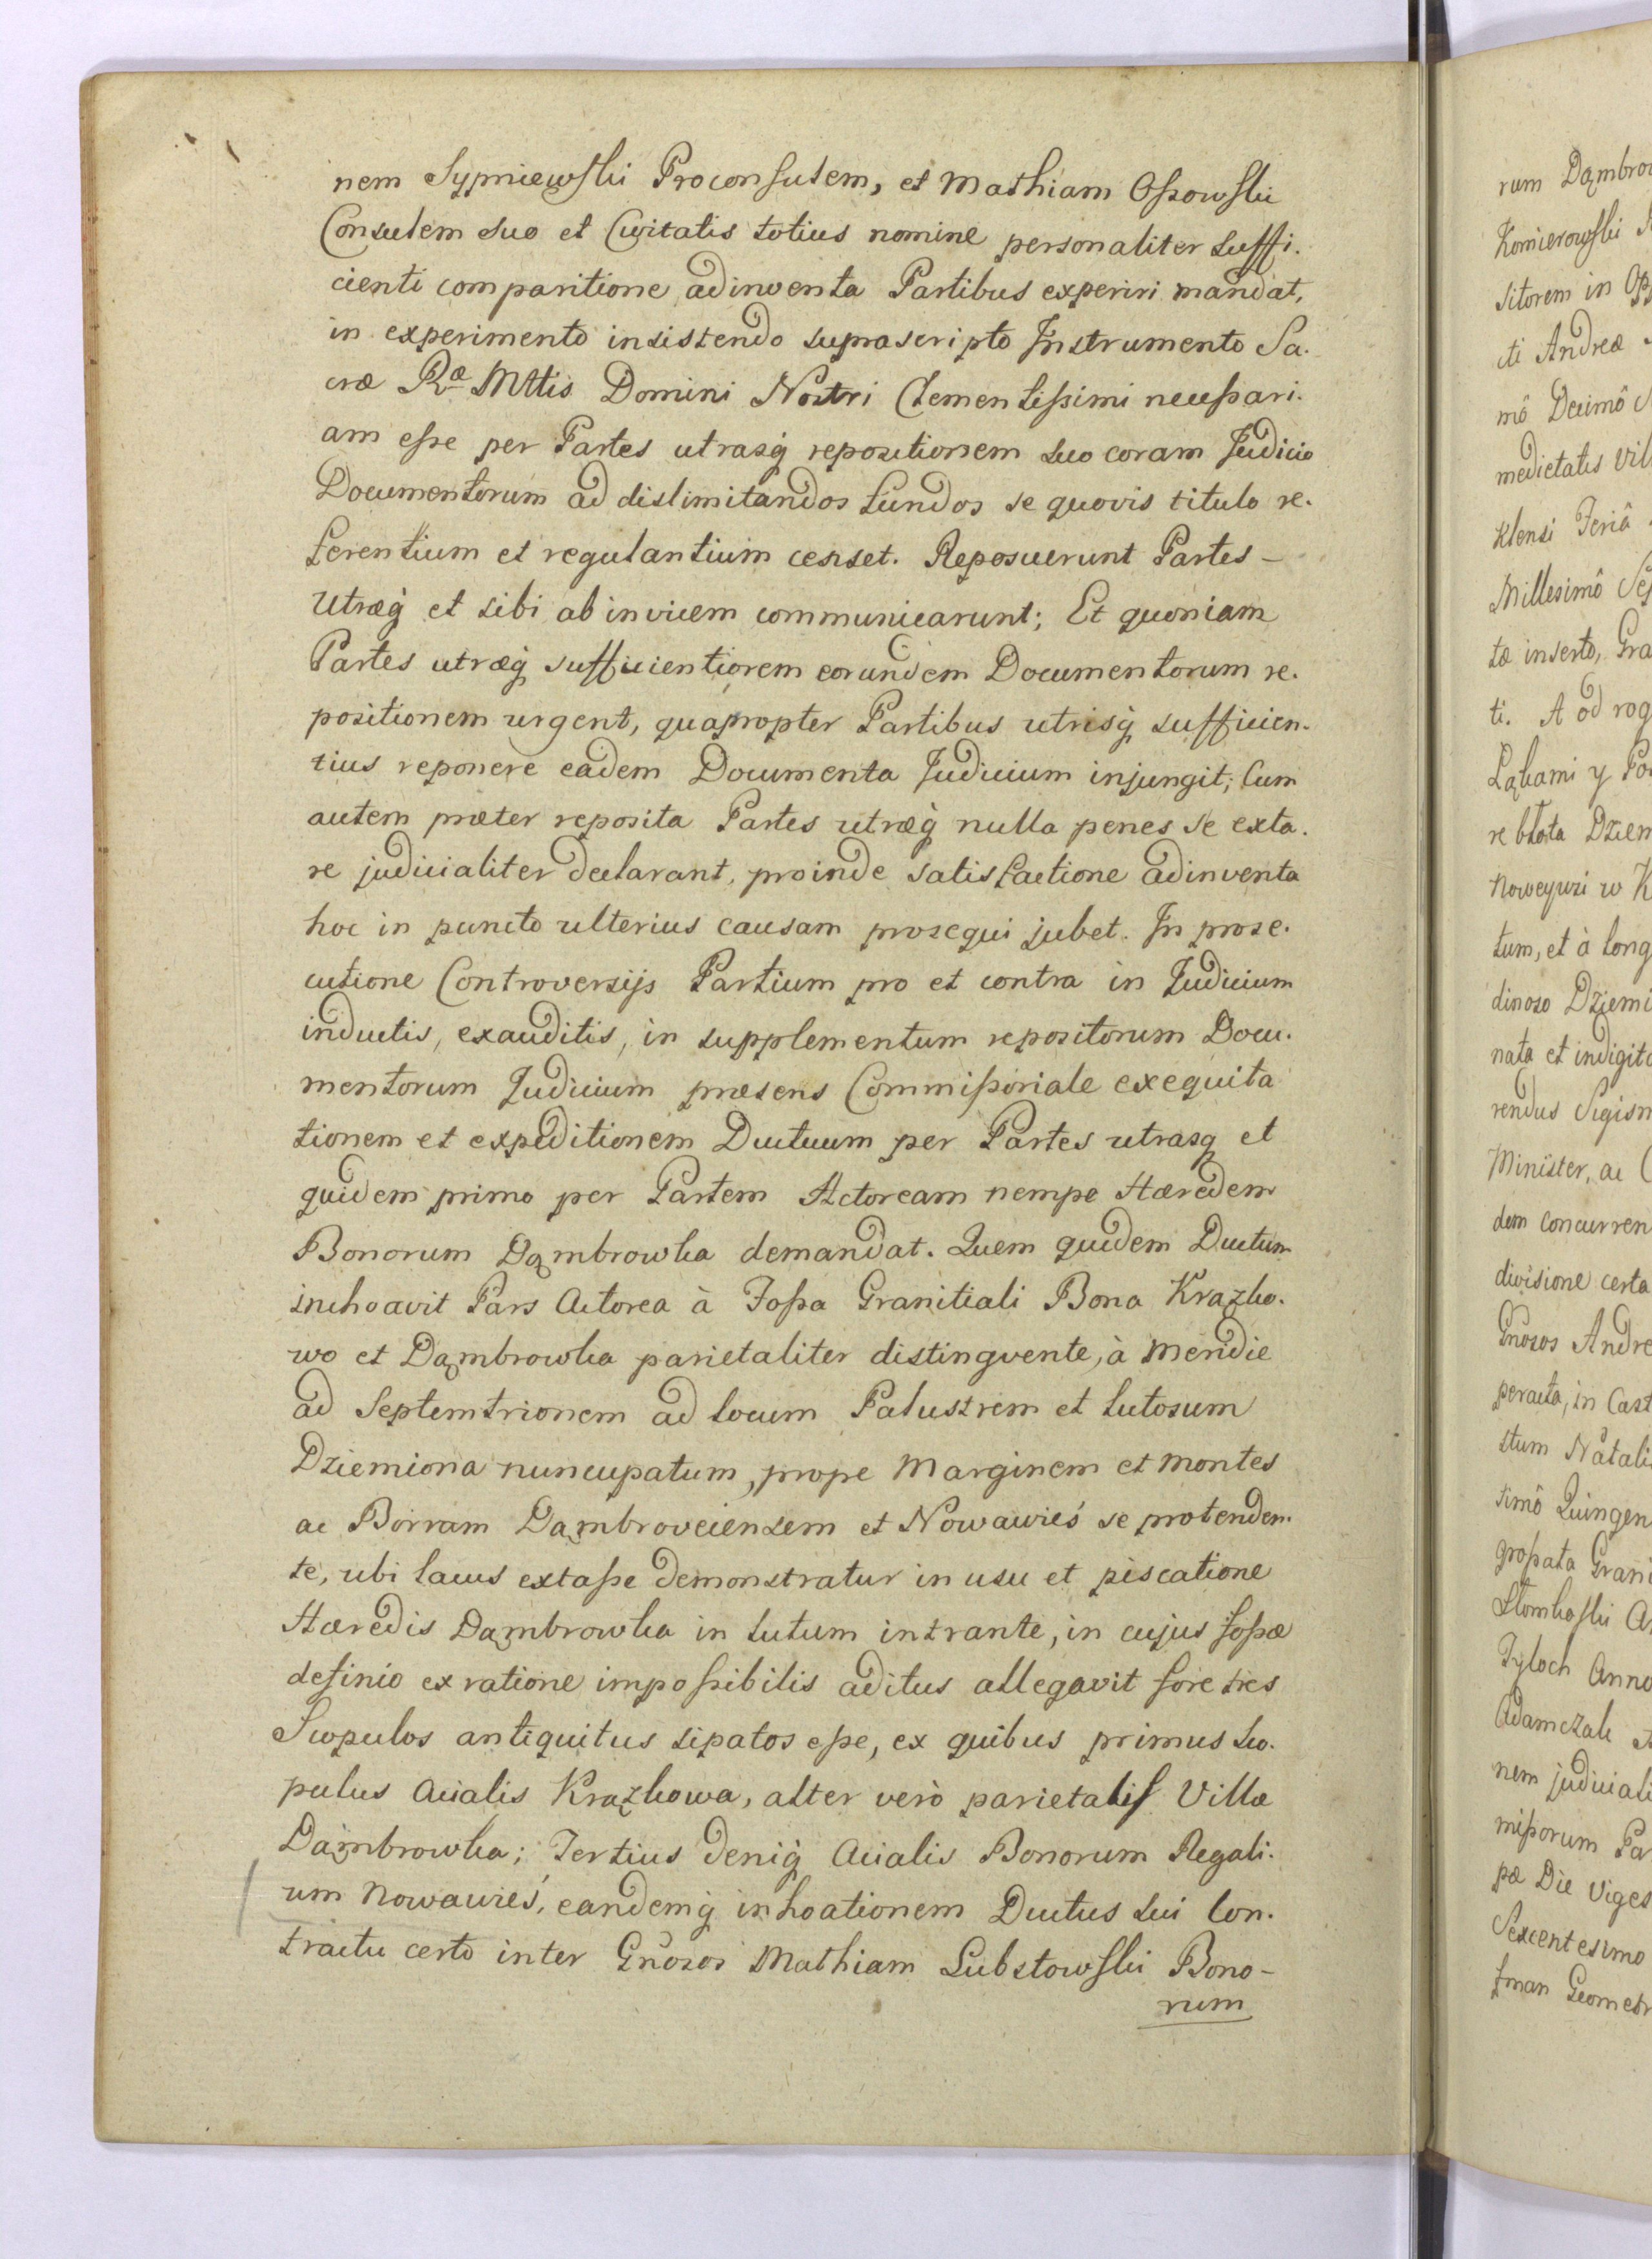 nem Sypniewski Proconsulem, et Mathiam Ossowski
Consulem suo et Civitatis totius nomine personaliter suffi-
cienti comparitione adinventa Partibus experiri mandat,
in experimento insistendo suprascripto Instrumento Sa-
cræ Ræ Mttis Domini Nostri Clementissimi necessari-
am esse per Partes utrasq́ repositionem suo coram Judicio
Documentorum ad dislimitandos fundos se quovis titulo re-
ferentium et regulantium censet. Reposuerunt Partes –
Utræq́ et sibi ab invicem communicarunt; Et quoniam
Partes utræq́ sufficientiorem eorundem Documentorum re-
positionem urgent, quapropter Partibus utrisq́ sufficien-
tius reponere eadem Documenta Judicium injungit; Cum
autem præter reposita Partes utræq́ nulla penes se exta-
re judicialiter declarant, proinde satisfactione adinventa
hoc in puncto ulterius causam prosequi jubet. In prose-
cutione Controversijs Partium pro et contra in Judicium
inductis, exauditis, in supplementum repositorum Docu-
mentorum Judicium præsens Commissoriale exequita
tionem et expeditionem Ductuum per Partes utrasq et
quidem primo per Partem Actoream nempe Hæredem
Bonorum Dąmbrowka demandat. Quem quidem Ductum
inchoavit Pars Actorea à Fossa Granitiali Bona Krązko-
wo et Dąmbrowka parietaliter distingvente, à Meridie
ad Septemtrionem ad locum Palustrem et lutosum
Dziemiona nuncupatum, prope Marginem et Montes
ac Borram Dąmbroveiensem et Nowawieś se protenden-
te, ubi lacus extasse demonstratur in usu et piscatione
Hæredis Dąmbrowka in lutum intrante, in cujus fossæ
definio ex ratione impossibilis aditus allegavit fore tres
Scopulos antiquitus sipatos esse, ex quibus primus Sco-
pulus Acialis Krązkowa, alter verò parietalis Villæ
Dąmbrowka; Tertius deniq́ Acialis Bonorum Regali-
um Nowawieś, eandemq́ inhoationem Ductus sui Con-
tractu certo inter Gñosos Mathiam Lubstowski Bono-
rum
rum Dąmbrow
Komierowski
sitorem in
cti Andreæ
mô Decimô
medietatis Vil
klensi Feriâ
Millesimô Sep
tæ inserto, Gra
ti. A od rog
Łąkami y
re błota Dziem
Noweywsi w K
tum, et à long
dinoso Dziemi
nata et indigita
rendus Sigism
Minister, ac C
dem concurren
divisione certa
Gñosos Andre
peracta, in Cast
stum Natali
simô Quingen
grossata Grani
Słomkoski
Tyloch Anno
Adamczak
nem judiciali
missorum Pa
pæ Die Viges
Sexcentesimo
Geometr